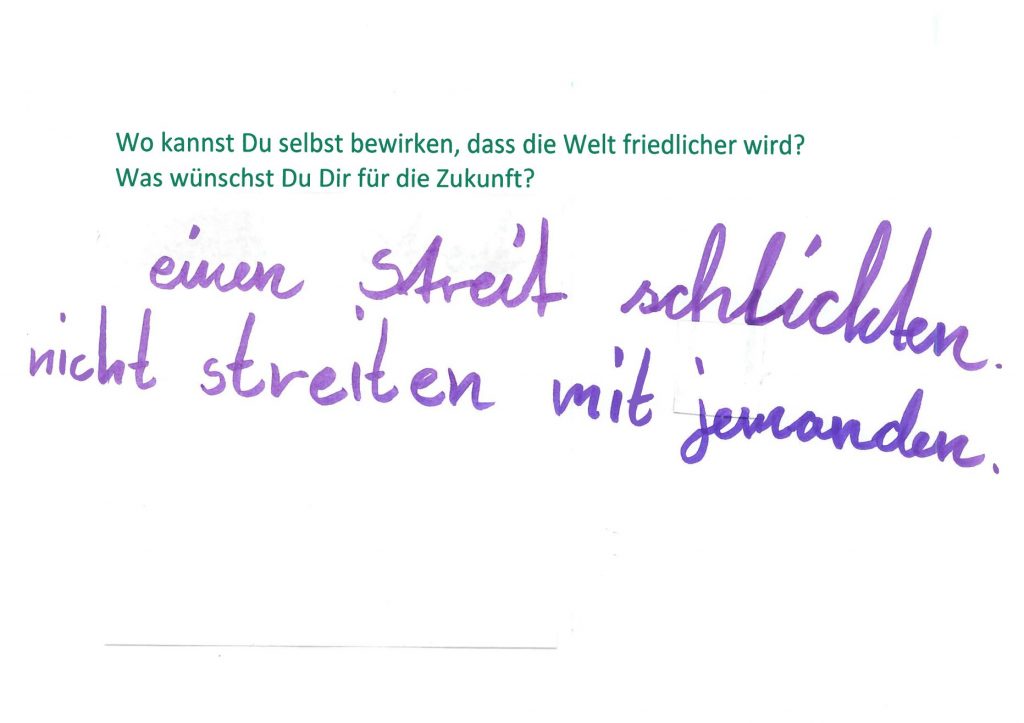 Wo kannst Du selbst bewirken, dass die Welt friedlicher wird?
Was wünschst Du Dir für die Zukunft?
einen Streit schlickten.
nicht streiten mit jemanden.